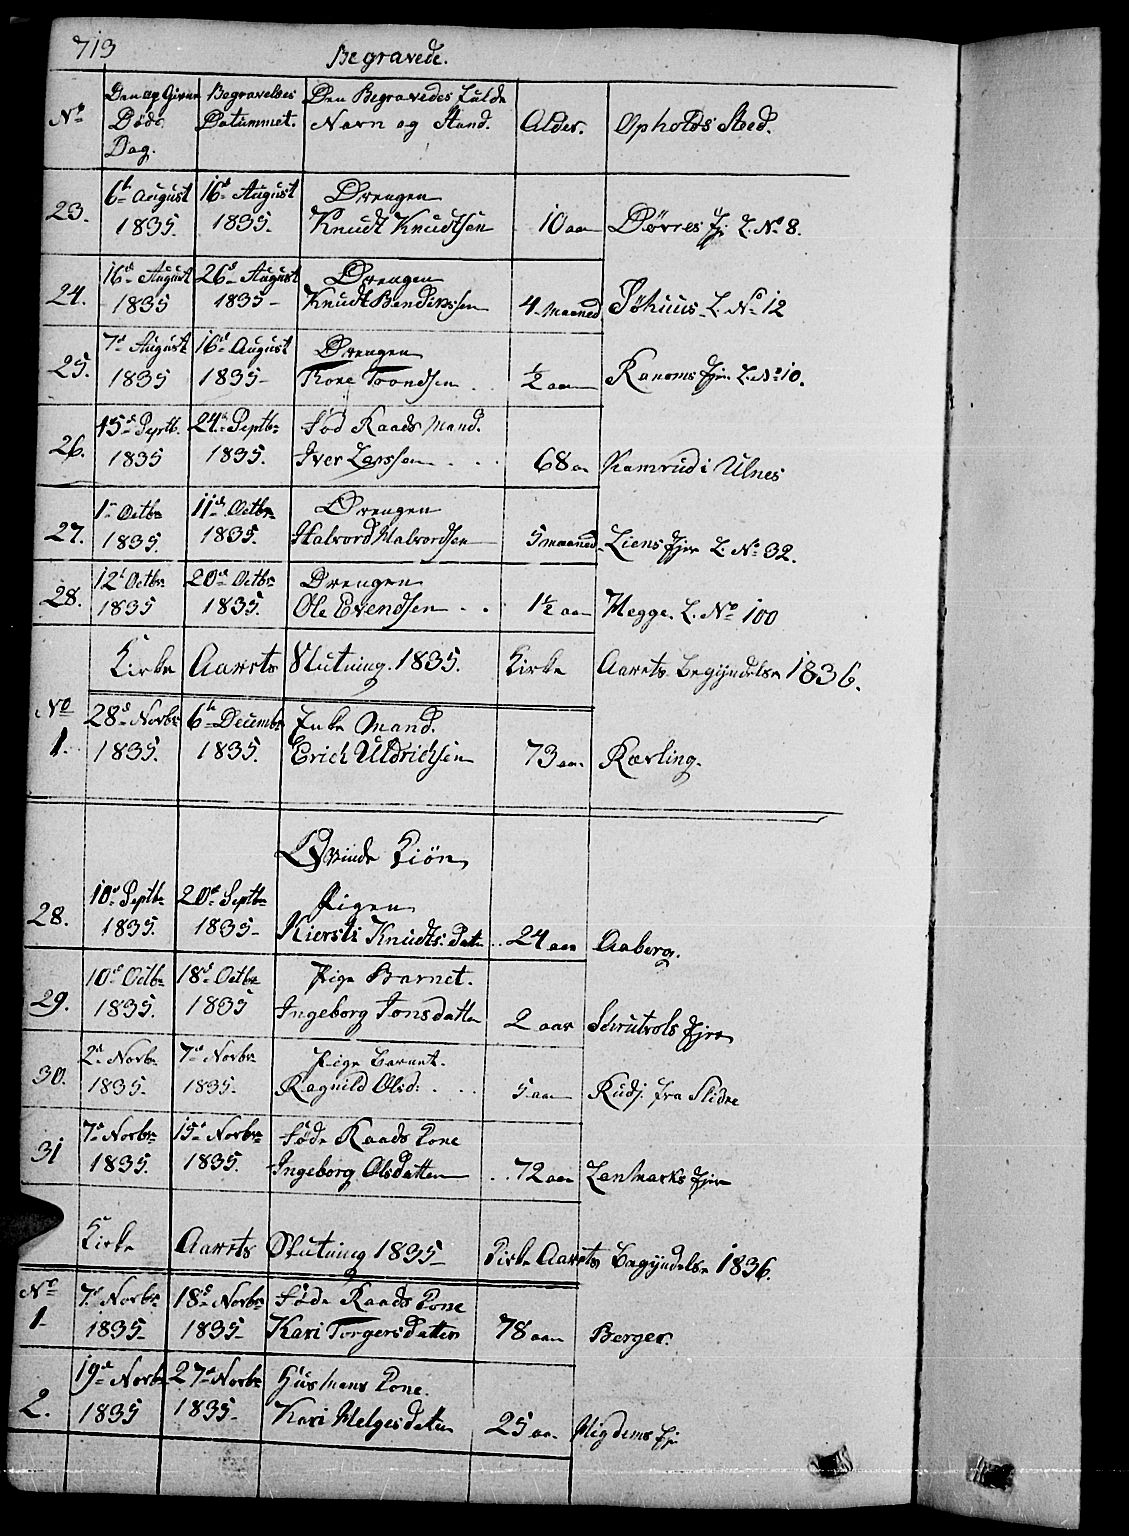 713
Begravede.
No
Den op Given Døds Dag.
Begravelses Datummet.
Den Begravedes Fulde Navn og Stand.
Alder.
Opholds Sted.
23. 6te August 1835. 16de August 1835. Drengen Knudt Knudtsen 10 aar Dørres Ejr L. No 8.
24. 16de August 1835 26de August 1835 - Drengen Knudt Bendixssen 4 Maaned L. No 12
25. 7de August 1835 16de August 1835 - Drengen Tore Troondsen ½ aar Ranoms Ejr L. No 10.
26. 15de Septb. 1835 24de Septbr 1835. Fød Raads Mand. Iver Larssen 68 aar Ramrud i Ulnes
27. 1te Octbr 1835. 11te Octbr 1835. Drengen Halvord Halvordsen 5 maaned Liens Ejer L. No 32.
28. 12te Octbr 1835 20de Octbr 1835. Drengen Ole Evendsen 1½ aar Hegge. L. No 100
Kirke Aarets Slutning. 1835. Kirke Aarets Begyndelse 1836.
No 1. 28de Novbr 1835. 6te Decembr 1835. Enke Mand. Erich Uldrichsen 73 aar Kærling.
Qvinde Kiøn
28. 10de Septbr 1835. 20de Septbr 1835 - Pigen Kiersti Knudts: Datr 24 aar Aaberg.
29. 10de Octbr 1835. 18de Octbr 1835 Pige Barnet. Ingeborg Jonsdatter 2 aar Skrutvols Ejre
30. 2de Novbr 1835. 7de Novbr 1835. Pige Barnet. Ragnild Olsd: 5 aar Rudj. fra Slidre
31 7de Novbr 1835. 15de Novbr 1835. Føde Raads Kone Ingeborg Olsdatter 72 aar Ejer
Kirke Aarets Slutning 1835 - Kirke Aarets Begyndelse 1836.
No 1 - 7de Novbr 1835 - 18de Novbr 1835 - Føde Raads Kone Kari Torgersdatter 78 aar Berger.
2. 19de Novbr 1835 27de Novbr 1835 - Husmans Kone. Kari Helgesdatter 25 aar Ejr